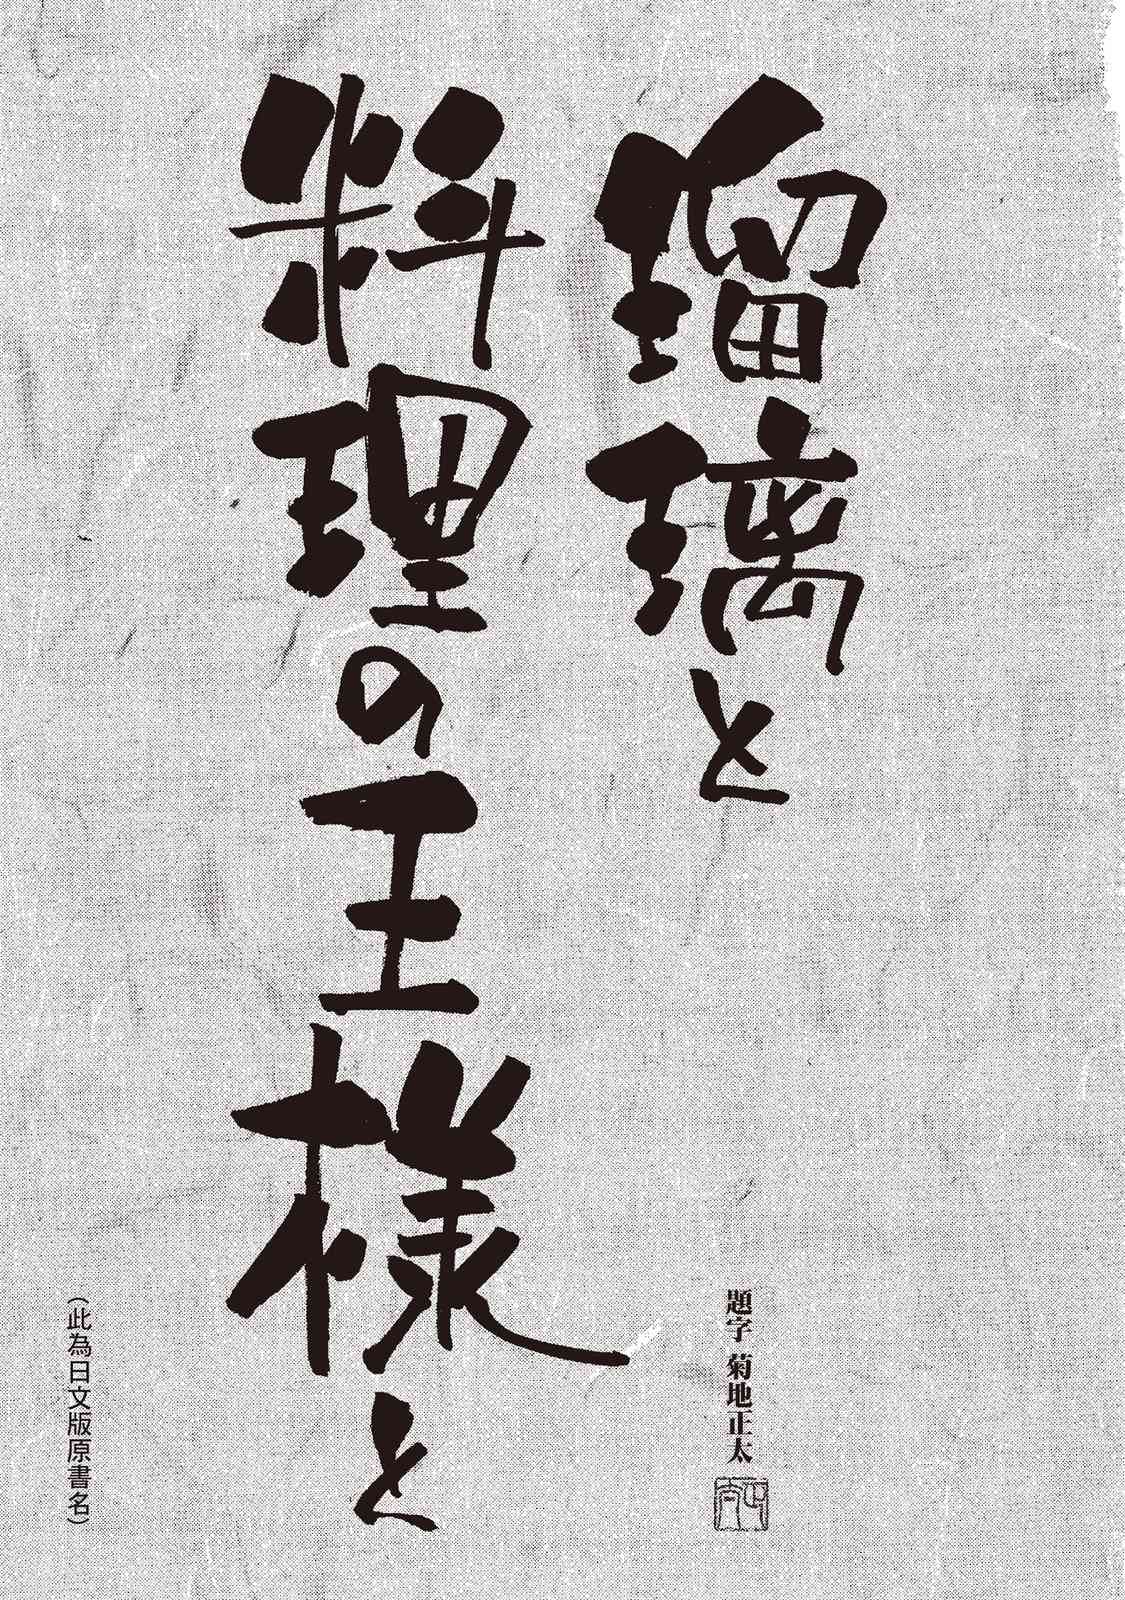 瑠璃と
料理の王様と
題字 菊地正太
（此為日文版原書名）